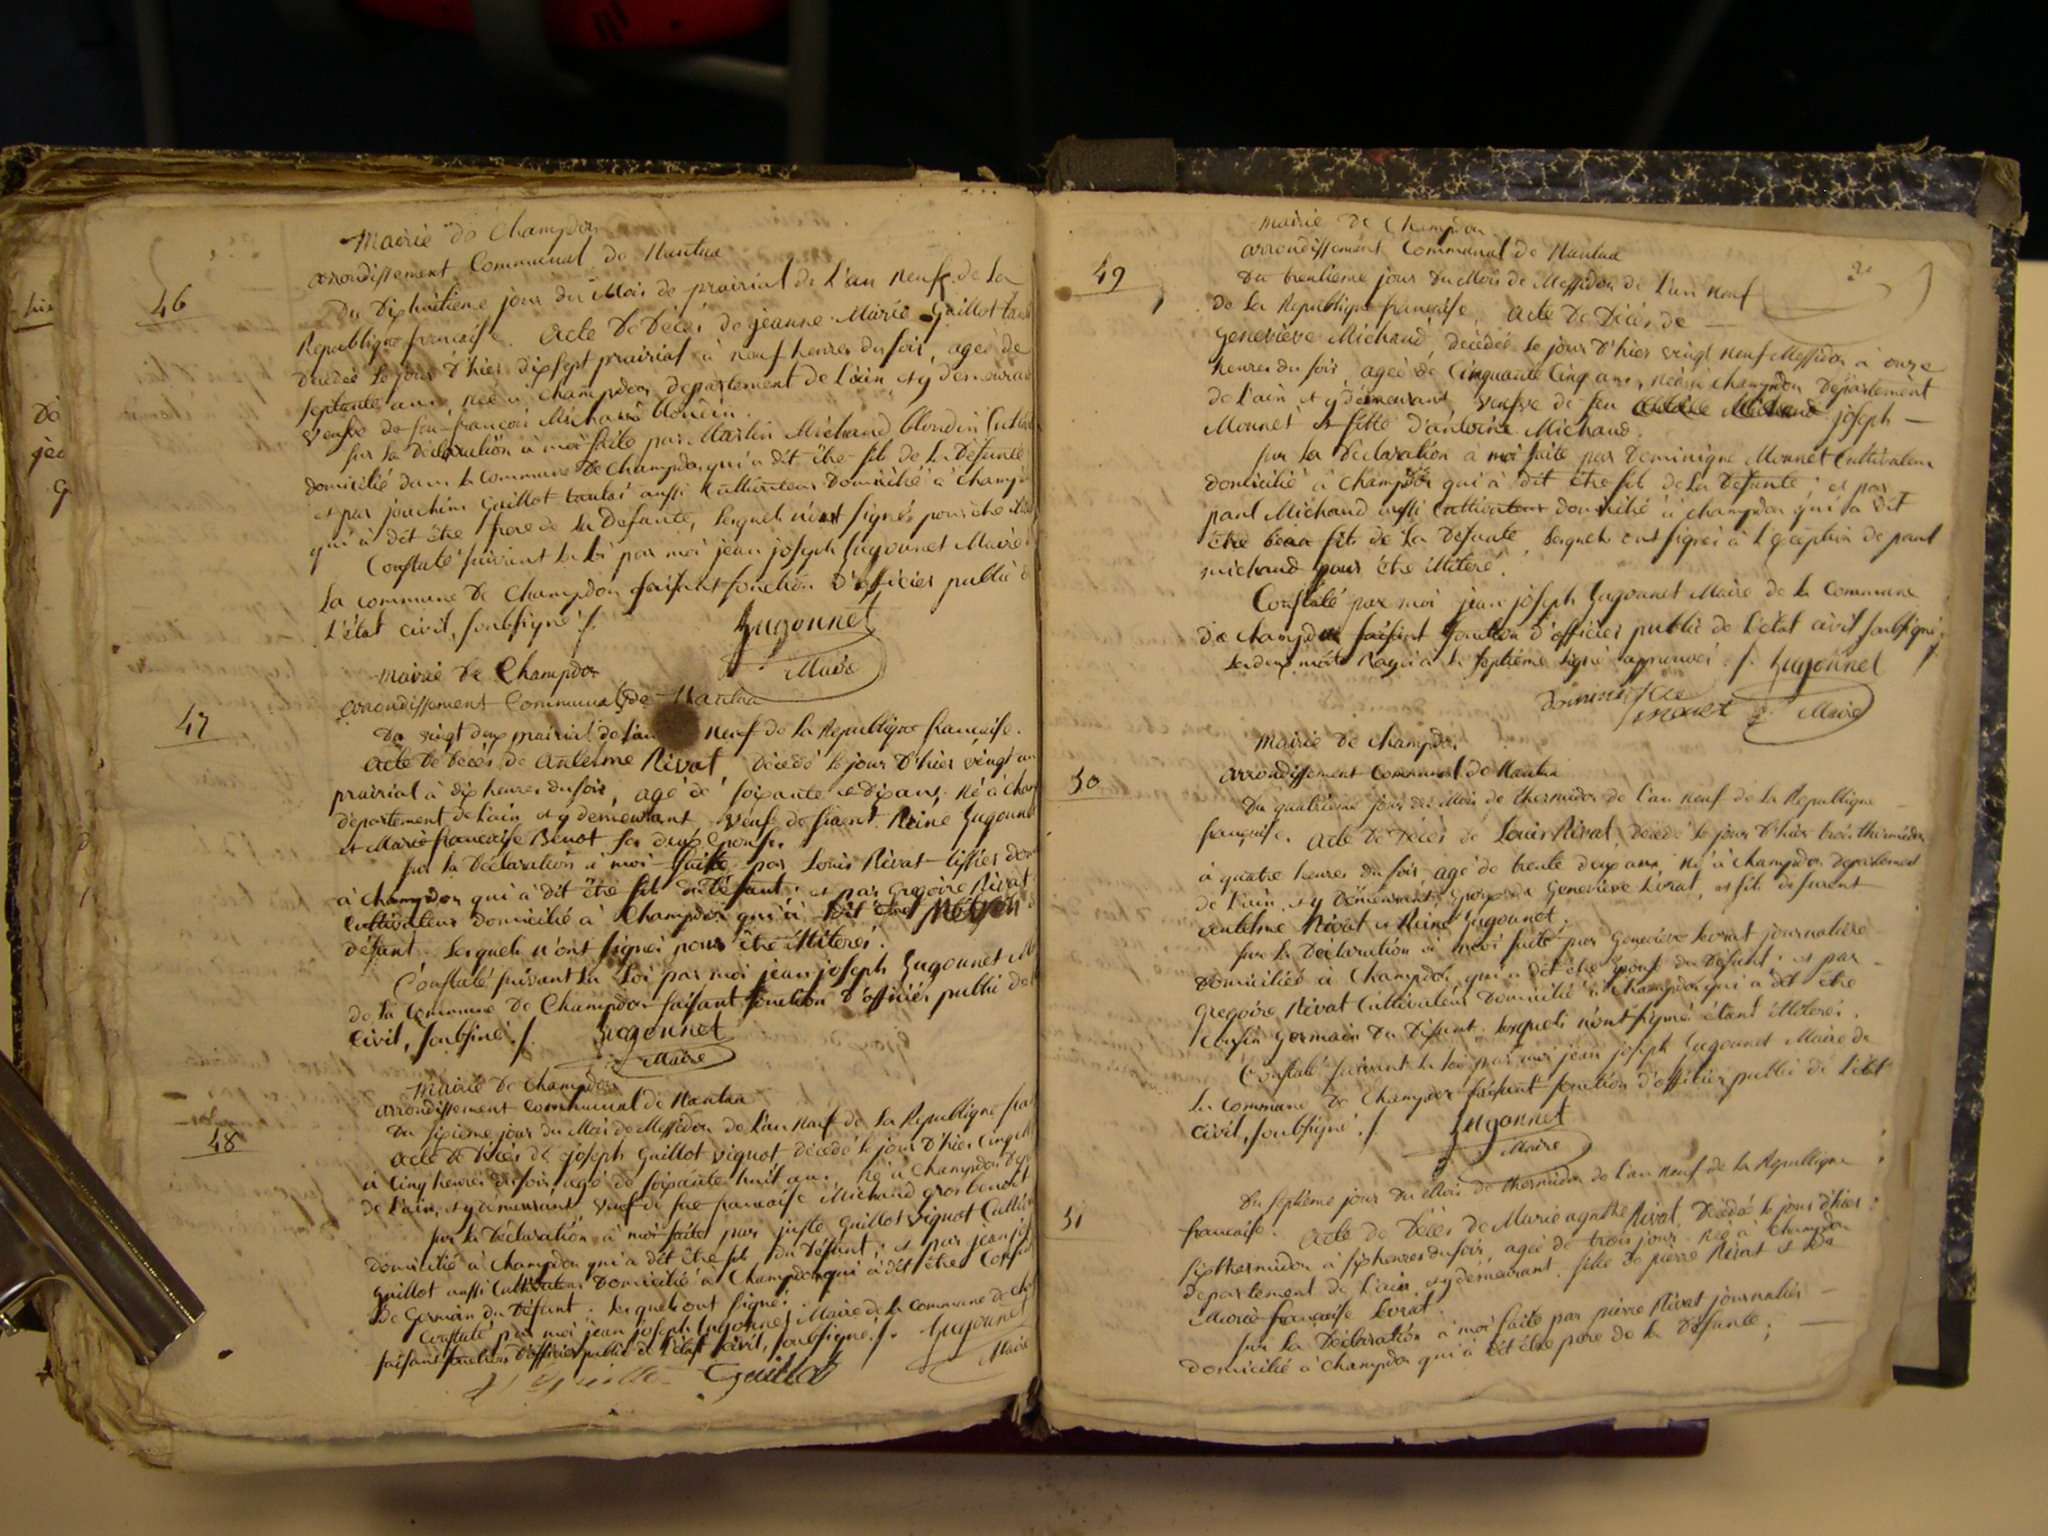 46
Mairie de Champdor
arrondissement Communal de Nantua
Du Dixhuitième jour du Mois de prairial de L'an neuf de La
Republique francaise. Acte De Décés de jeanne Marie Guillot
Décédée le jour d'hier dixsept prairial à neuf heures du soir, ageé de
septante ans née à champdor departement de L'ain, et y demeurant
veufve de feu françois Michaud blondin.
sur La Déclaration à moi faite par Martin Michaud blondin
domicilié dans La commune De Champdor qui à dit être fils de La Défunte
et par joachim Guillot aussi Cultivateur Domicilié à champdor
qui à dit être frere de La Defunte, Lesquels n'ont signés pour être
Constaté suivant La Loi par moi jean joseph Gugonnet Maire
La commune De Champdor faisant fonction D'officier public
L'état civil, soubsigné ./.
Gugonnet
Maire
47
Mairie De Champdor
arrondissement Communal de Nantua
Du vingt deux prairial de L'an neuf de La Republique francaise.
Acte De Décés de Antelme Rivat, Décédé le jour D'hier vingt un
prairial à dix heures du soir, agé de soixante et Dix ans, Né à
departement de L'ain et y demeurant veuf de fuent Reine Gugonnet
et Marie francaise Benot ses deux Epouses.
sur La Déclaration à moi faite par Louis Rivat tissier
à Champdor qui à Dit être fils du Défunt; et par Gregoire Rivat
Cultivateur domicilié à Champdor qui à Dit être Neveu
défunt. Lesquels n'ont signés pour être illiterés.
Constaté suivant La Loi par moi jean joseph Gugonnet
de La Commune De Champdor faisant fonction D'officier public de
Civil, soubsiné ./.
Gugonnet
Maire
48
Mairie De Champdor
arrondissement communal de Nantua
Du sixieme jour du Mois de Messidor de L'an Neuf de La Republique
Acte De Décés de joseph Guillot vignot décédé le jour D'hier Cinq
à Cinq heures du soir agé de soixante huit ans, Né à Champdor
de L'ain, et y demeurant veuf de fue francaise Michaud grosbenoit
sur La Déclaration à moi faite par juste Guillot vignot
domicilié à Champdor qui à dit être fils du Défunt; et par jean
Guillot aussi Cultivateur Domicilié à Champdor qui à dit être
De Germain du Défunt. Lesquels ont signés.
Constaté par moi jean joseph Gugonnet Maire de La commune de
faisant fonction D'officier public de L'état Civil, soubsigné ./.
Gugonnet
Maire
Guillot
49
Mairie De Champdor
arrondissement Communal de Nantua
Du trentieme jour Du Mois de Messidor de L'an Neuf
de La Republique francaise, Acte De Décés de
Genevieve Michaud, décédée le jour D'hier vingt neuf Messidor à onze
heures du soir, ageé de Cinquante Cinq ans, Née à champdor Département
de L'ain et y demeurant veufve de feu joseph
Monnet et fille D'antoine Michaud.
sur La Déclaration à moi faite par Dominique Monnet Cultivateur
domicilié à Champdor qui à dit être fils de La Défunte; et par
paul Michaud aussi Cultivateur domicilié à champdor qui à dit
être beau fils de La Défunte, Lesquels ont signés à L'éxception de paul
michaud pour être illiteré.
Constaté par moi jean joseph Gugonnet Maire de La Commune
De Champdor faisant fonction d'officier public de L'état civil soubsigné,
Les deux mots Rayés à La septième Ligne approuvés ./. Gugonnet
Maire
Dominique
monet
50
Mairie De Champdor
arrondissement Communal de Nantua
Du quatrieme jour du Mois de thermidor de L'an Neuf de La Republique
française. Acte De Décés de Louis Rivat, Décédé le jour D'hier trois thermidor
à quatre heures du soir, agé de trente deux ans, Né à champdor Departement
de L'ain, et y Demeurant, Epoux de Genevieve Levrat, et fils de furent
Antelme Rivat et Reine Gugonnet.
sur La Déclaration à moi faite par Genevieve Levrat journaliere
Domiciliée à Champdor, qui à dit être Epouse du Défunt; et par
Gregoire Rivat Cultivateur Domicilié à Champdor qui à dit être
Cousin Germain Du Défunt, Lesquels n'ont signé étant illiterés.
Constaté suivant La Loi par moi jean joseph Gugonnet Maire de
La Commune De Champdor faisant fonction d'officier public de L'état
civil, soubsigné ./.
Gugonnet
Maire
51
Du septieme jour Du Mois de thermidor de L'an Neuf de La Republique
francaise. Acte de Décés de Marie agathe Rivat, Décédée le jour d'hier
six thermidor à six heures du soir, ageé de trois jours, Née à Champdor
departement de L'ain, et y demeurant, fille De pierre Rivat et De
Marie francaise Levrat.
sur La Déclaration à moi faite par pierre Rivat journalier
domicilié à Champdor qui à dit être pere de La Défunte;